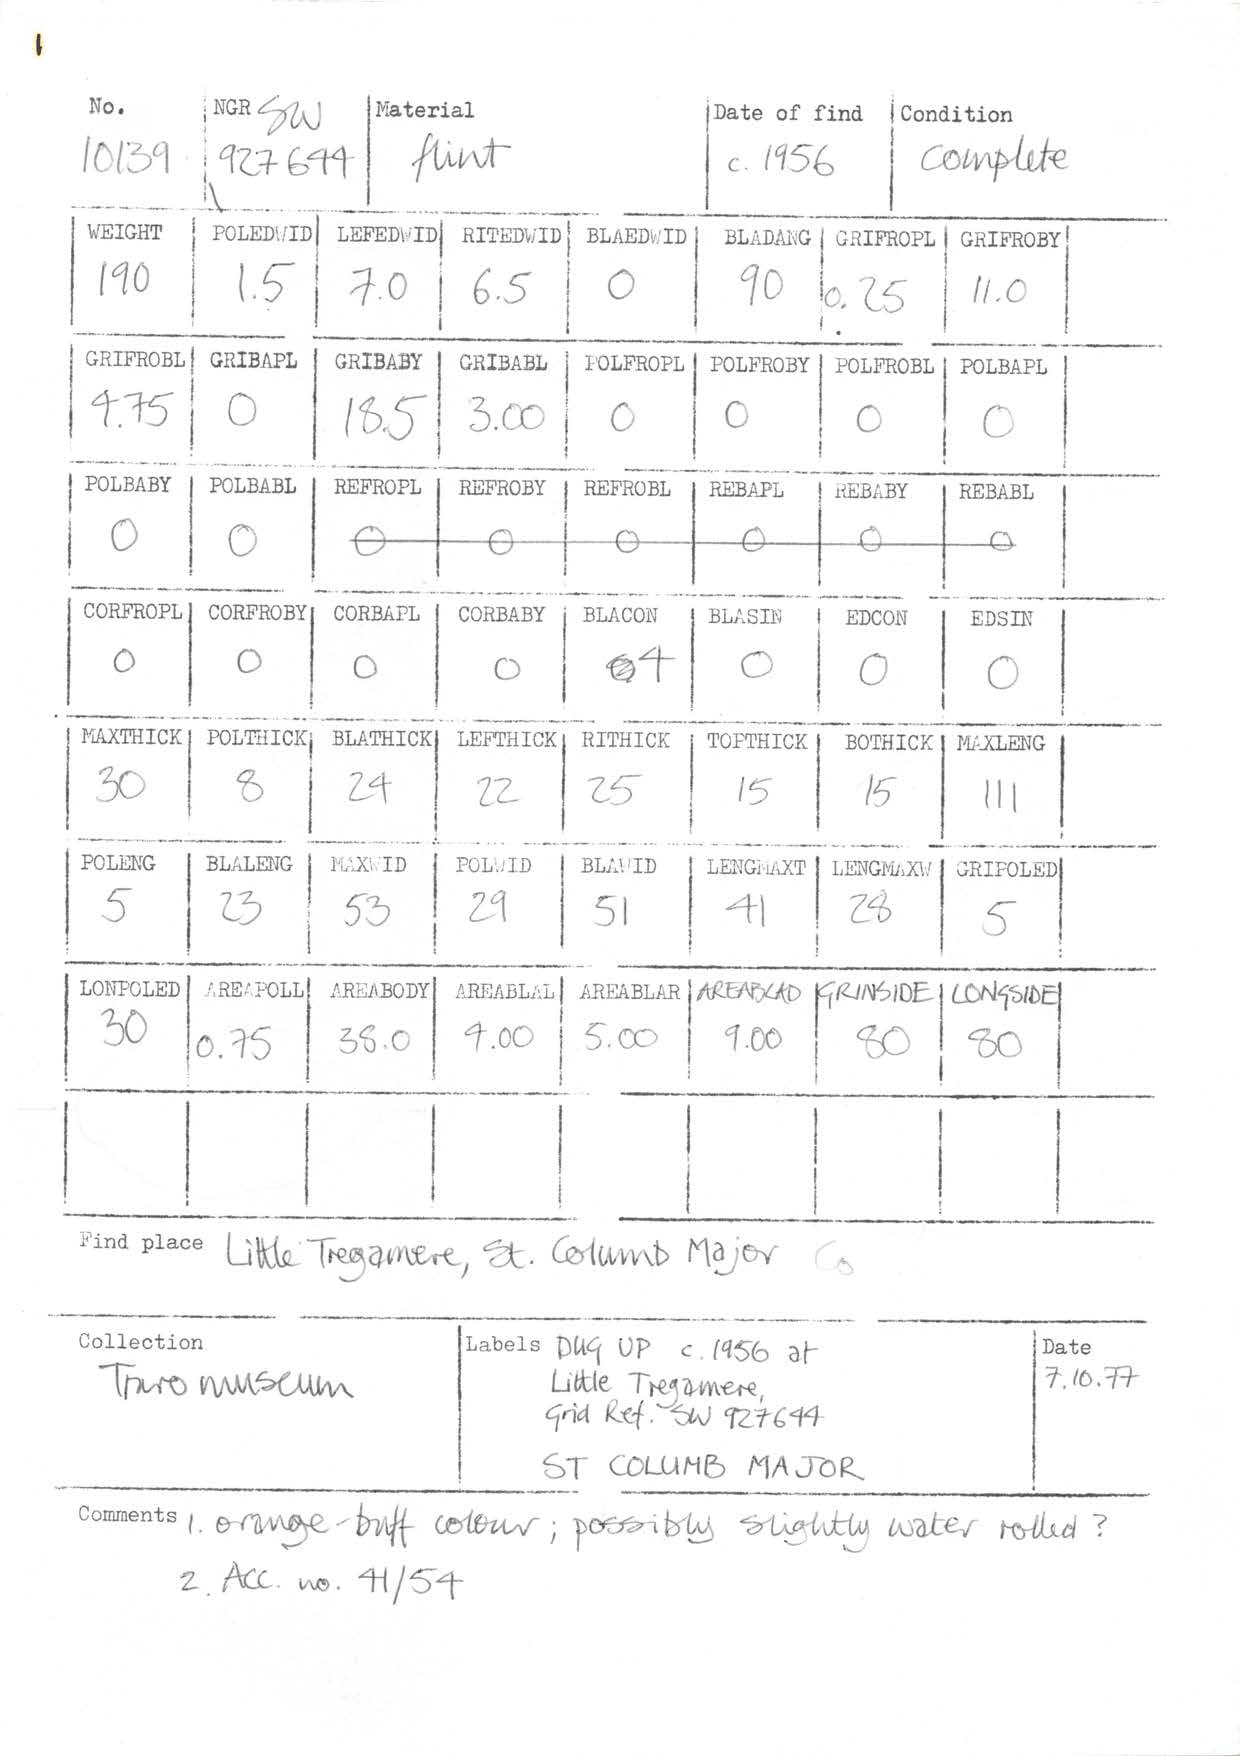 No. NGR SW Material Date of find Condition
10139 927644 flint c. 1956 complete
WEIGHT POLEDWID LEFEDWID RITEDWID BLAEDWID BLADANG GRIFROPL GRIFROBY
190 1.5 7.0 6.5 0 90 0.25 11.0
GRIFROBL GRIBAPL GRIBABY GRIBABL POLFROPL POLFROBY POLFROBL POLBAPL
4.75 0 18.5 3.00 0 0 0 0
POLBABY POLBABL REFROPL REFROBY REFROBL REBAPL REBABY REBABL
0 0 0 0 0 0 0 0
CORFROPL CORFROBY CORBAPL CORBABY BLACON BLASIN EDCON EDSIN
0 0 0 0 4 0 0 0
MAXTHICK POLTHICK BLATHICK LEFTHICK RITHICK TOPTHICK BOTHICK MAXLENG
30 8 24 22 25 15 15 111
POLENG BLALENG MAXWID POLWID BLAWID LENGMAXT LENGMAXW GRIPOLED
5 23 53 29 51 41 28 5
LONPOLED AREAPOLL AREABODY AREABLAL AREABLAR AREABLAD GRINSIDE LONGSIDE
30 0.75 38.0 4.00 5.00 9.00 80 80
Find place Little Tregamere, St. Columb Major Co
Collection Labels DUG UP c. 1956 at Date
Truro museum Little Tregamere, 7.10.77
Grid Ref. SW 927644
ST COLUMB MAJOR
Comments 1. orange-buff colour; possibly slightly water rolled?
2. Acc. no. 41/54